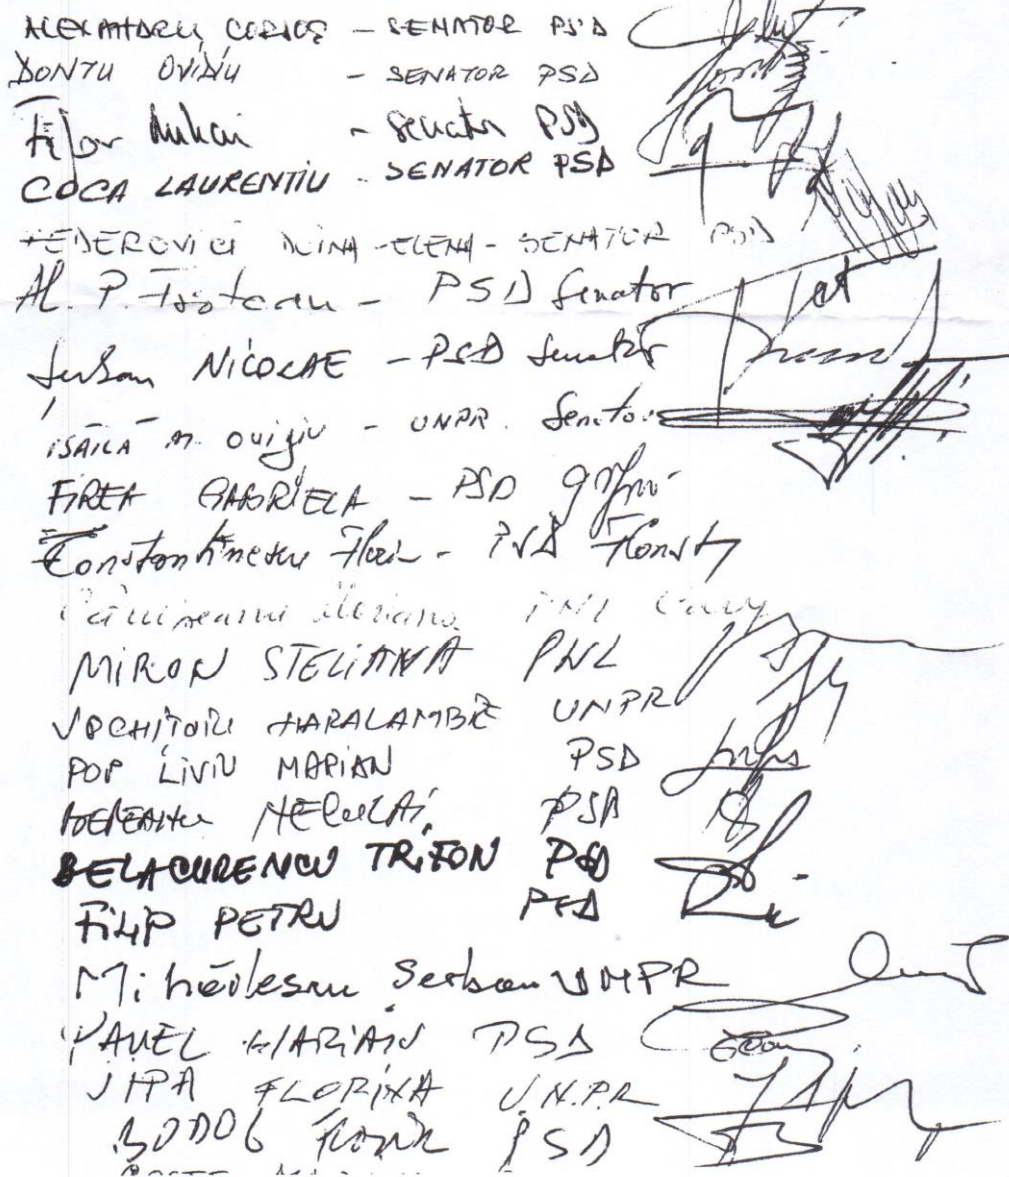 ALEXANDRU CORDOȘ - SENATOR PSD
DONȚU OVIDIU - SENATOR PSD
Fifor Mihai - Senator PSD
COCA LAURENȚIU - SENATOR PSD
FEDEROVICI DOINA-ELENA - SENATOR PSD
Al. P. - PSD Senator
Șerban NICOLAE - PSD Senator
ISĂILĂ M. Ovidiu - UNPR. Senator
FIREA GABRIELA - PSD
Constantinescu Florin - PSD
PNL
MIRON STELIANA PNL
VOCHIȚOIU HARALAMBIE UNPR
POP LIVIU MARIAN PSD
NECULAI PSD
BELACURENCU TRIFON PSD
FILIP PETRU PSD
Mihăilescu Serban UNPR
PAVEL MARIAN PSD
JIPA FLORINA U.N.P.R
BODOG PSD